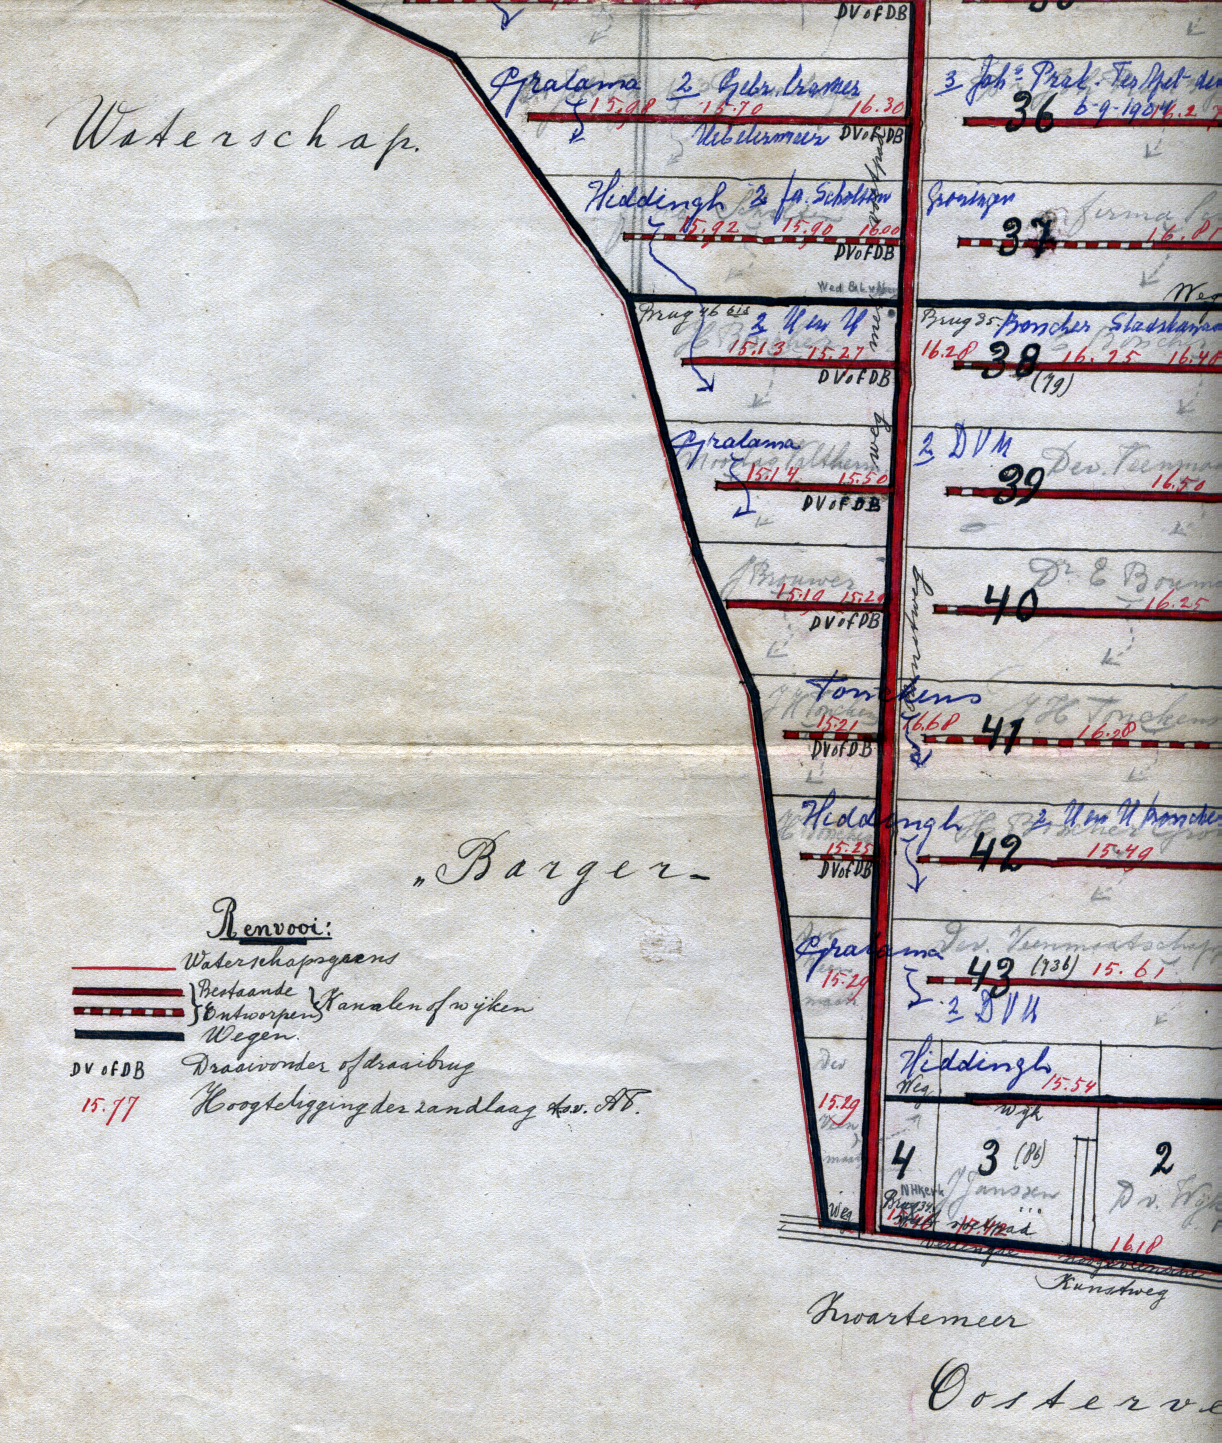 DV of DB
Gralama 2 Gebr. Cramer
3 Joh.s Prak. Ter Apel
15.98 15.70 16.30
36 6-9-1904
Uebelermeer DV of DB
Waterschap.
voetpad
Hiddingh 2 fa. Scholten Groningen
15.92 15.90 16.00
37 firma
16.81
DV of DB
Weg
Brug 46
2 U en U
Brug 35 Bosscher Stadskanaal
15.13 15.27
16.28 38 16.25 16.40
(79)
DV of DB
Gralama
weg
2 DVM
Dev. Veenmaa
15.14 15.50
39 16.50
DV of DB
J Brouwer
Dr E Bouma
15.19
40 16.25
DV of DB
Kunstweg
Tonckens
J H Tonckens
15.21 16.68 41 16.28
DV of DB
Hiddingh 2 U en U Bosscher
15.25 42 15.49
DV of DB
„Barger-
Gralama Dev. Veenmaatschapp
15.29 43 (936) 15.61
2 DVM
Renvooi:
Waterschapsgrens
Bestaande
Ontworpen
Kanalen of wijken
Wegen.
DV of DB Draaivonder of draaibrug
15.77 Hoogteligging der zandlaag t.o.v. AP.
Hiddingh
Weg 15.54
Wijk
Dev
15.29
Veen
maa
4 3 (86) 2
NHkerk
J Janssen
D v. Wijk
Brug 34
Weg
voetpad
16.18
Verlengde Hoogeveensche
Kunstweg
Zwartemeer
Oosterve